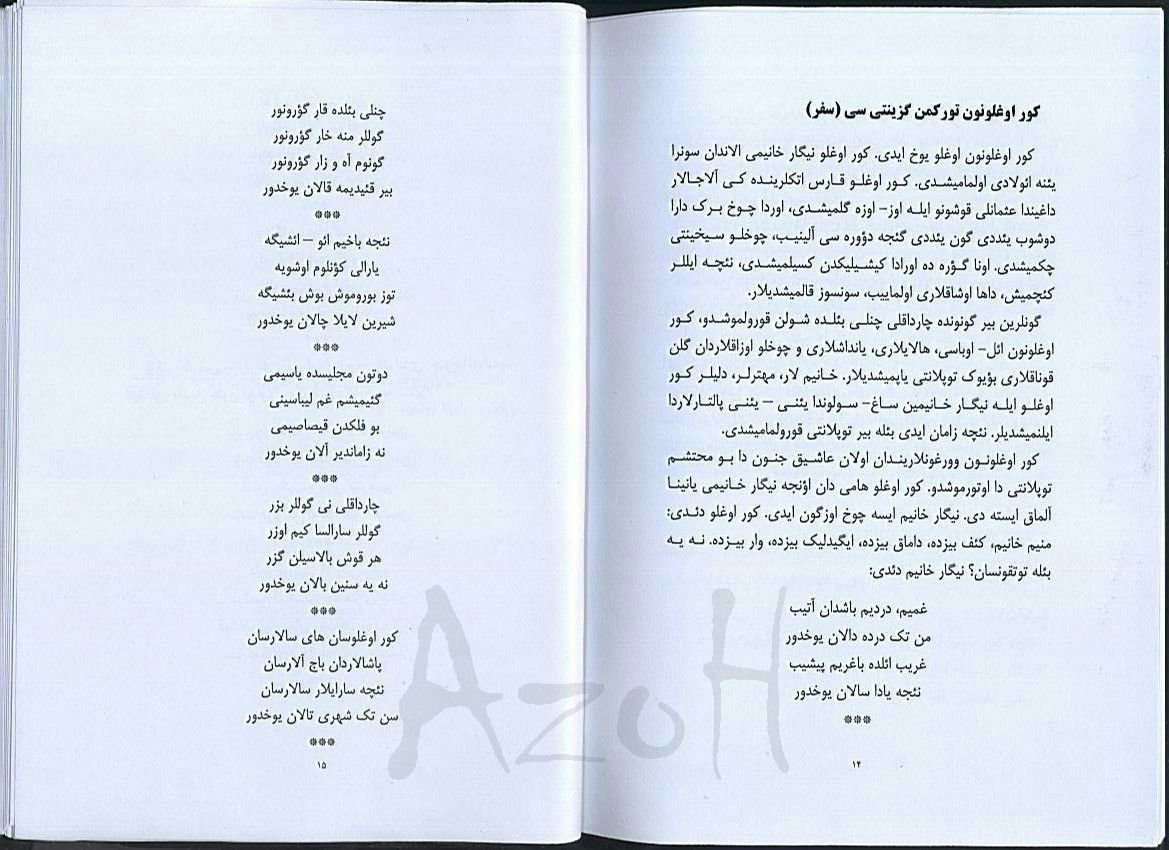 کور اوغلونون تورکمن گزینتی سی (سفر)
کور اوغلونون اوغلو یوخ ایدی. کور اوغلو نیگار خانیمی الاندان سونرا
یئنه ائولادی اولمامیشدی. کـور اوغلـو قـارس اتکلرینـده کـی آلاجـالار
داغیندا عثمانلی قوشونو ایلـه اوز- اوزه گلمیشدی، اوردا چـوخ بـرک دارا
دوشوب یئددی گون یئددی گئجه دؤوره سی آلینیـب، چوخلـو سیخینتی
چکمیشدی. اونا گـؤره ده اورادا کیشـیلیکدن کسیلمیشـدی، نئچـه ایللـر
کئچمیش، داها اوشاقلاری اولماییب، سونسوز قالمیشدیلار.
گونلرین بیر گونونده چارداقلی چنلـی بئلـده شـولن قورولموشـدو، کـور
اوغلـونون ائل- اوباسی، هالایلاری، یانداشلاری و چوخلو اوزاقلاردان گلن
قوناقلاری بؤیوک توپلانتی یاپمیشدیلار. خـانیم لار، مهترلـر، دلیلـر کـور
اوغلـو ایلـه نیگـار خـانیمین ساغ- سـولوندا یئنـی – یئنـی پالتـارلاردا
ایلنمیشدیلر. نئچه زامان ایدی بئله بیر توپلانتی قورولمامیشدی.
کور اوغلونـون وورغونلاریندان اولان عاشیق جنون دا بـو محتشـم
توپلانتی دا اوتورموشدو. کور اوغلو هامی دان اؤنجه نیگار خـانیمی یانینـا
آلماق ایسته دی. نیگار خانیم ایسه چوخ اوزگون ایدی. کور اوغلو دئدی:
منیم خانیم، کئف بیزده، داماق بیزده، ایگیدلیک بیزده، وار بیـزده. نـه یـه
بئله توتقونسان؟ نیگار خانیم دئدی:
غمیم، دردیم باشدان آتیب
من تک درده دالان یوخدور
غریب ائلده باغریم پیشیب
نئجه یادا سالان یوخدور
***
۱۴
چنلی بئلده قار گؤرونور
گوللر منه خار گؤرونور
گونوم آه و زار گؤرونور
بیر قئیدیمه قالان یوخدور
***
نئجه باخیم ائو – ائشیگه
یارالی کؤنلوم اوشویه
توز بوروموش بوش بئشیگه
شیرین لایلا چالان یوخدور
***
دوتون مجلیسده یاسیمی
گئیمیشم غم لیباسینی
بو فلکدن قیصاصیمی
نه زاماندیر آلان یوخدور
***
چارداقلی نی گوللر بزر
گوللر سارالسا کیم اوزر
هر قوش بالاسیلن گزر
نه یه سنین بالان یوخدور
***
کور اوغلوسان های سالارسان
پاشالاردان باج آلارسان
نئچه سارایلار سالارسان
سن تک شهری تالان یوخدور
***
۱۵
AzoH